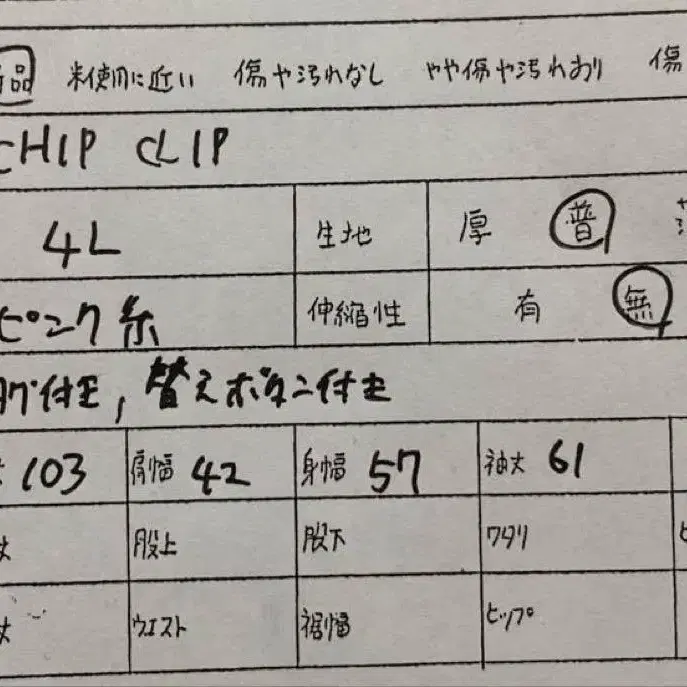 品 未使用に近い 傷や汚れなし やや傷や汚れあり 傷
CHIP CLIP
4L 生地 厚 普
ピンク系 伸縮性 有 無
タグ付き, 替えボタン付き
103 肩幅 42 身幅 57 袖丈 61
丈 股上 股下 ワタリ
丈 ウエスト 裾幅 ヒップ